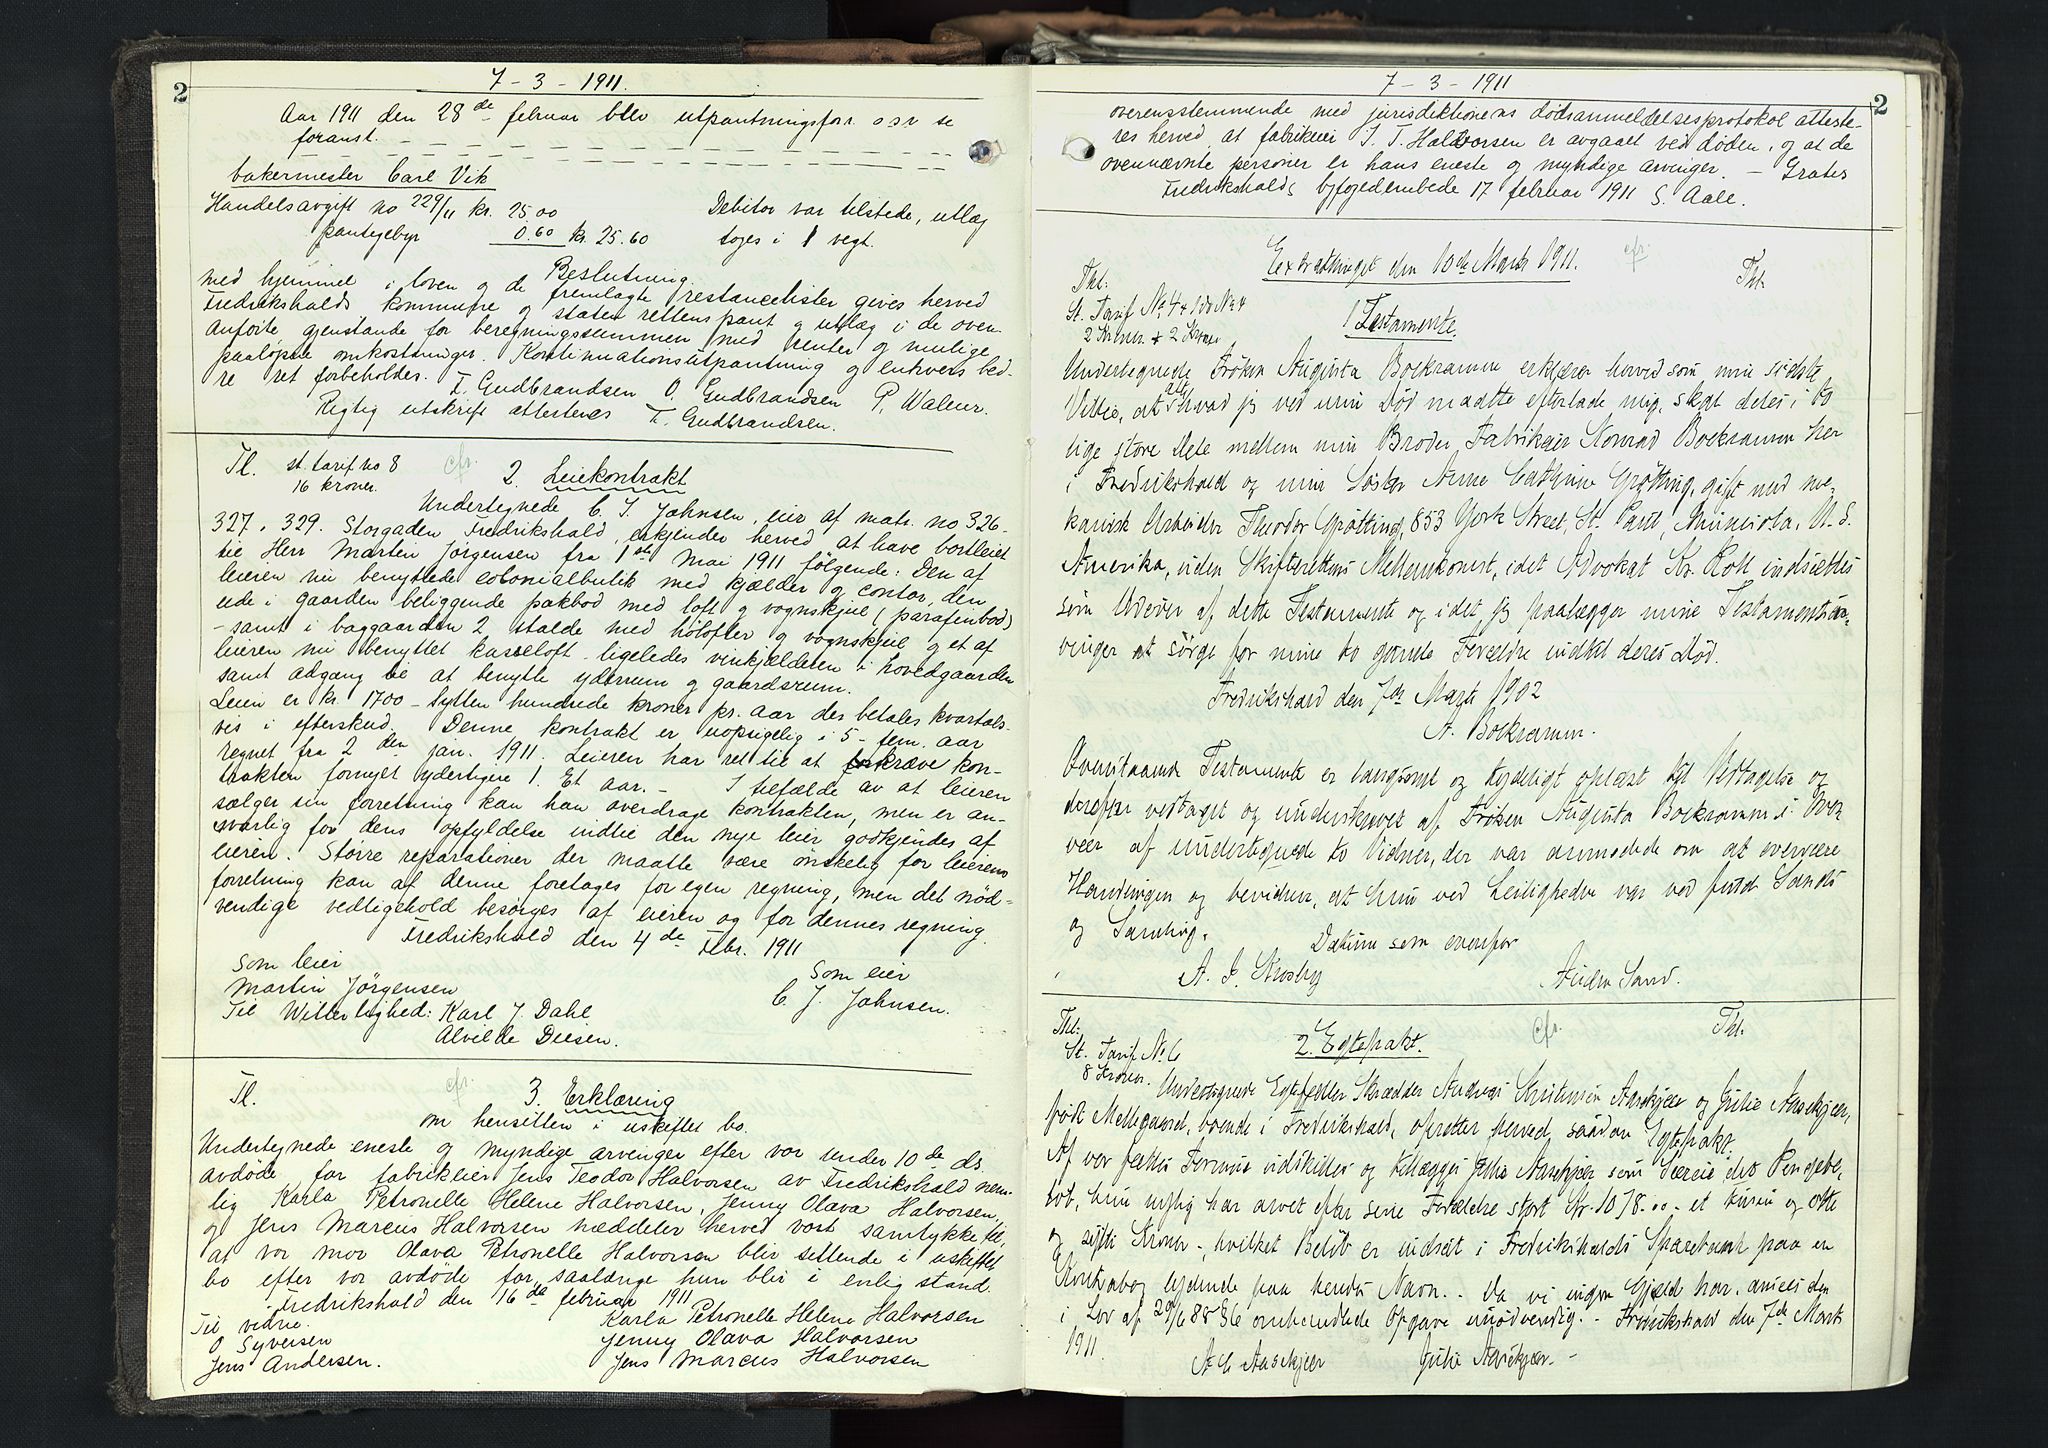 2
7 - 3 - 1911.
Aar 1911 den 28de februar blev utpantningsforr. o s v se
foranst. - - - -
bakermester Carl Vik
Handelsavgift no 229/11 kr. 25.00
pantegebyr 0.60 kr. 25.60
Debitor var tilstede, utlæg
toges i 1 vegt.
Beslutning.
med hjemmel i loven og de fremlagte restancelister gives herved
Fredrikshalds kommune og staten rettens pant og utlæg i de oven
anførte gjenstande for beregningssummen med renter og mulige
paaløpne omkostninger. Kontinuationsutpantning og enhvers bed-
re ret forbeholdes. T. Gudbrandsen O. Gudbrandsen P. Waleur.
Rigtig utskrift attesteres T. Gudbrandsen.
Tl. st. tarif no 8
16 kroner.
cfr.
2. Leiekontrakt
Undertegnede C. J. Johnsen, eier af matr. no 326.
327, 329. Storgaden Fredrikshald, erkjender herved at have bortleiet
til Herr Marten Jørgensen fra 1ste Mai 1911 følgende: Den af
leieren nu benyttede colonialbutik med kjælder og contor, den
ude i gaarden beliggende pakbod med loft og vognskjul (parafenbod)
- samt i baggaarden 2 stalde med hølofter og vognskjul og et af
leieren nu benyttet kasseloft. ligeledes vinkjælderen i hovedgaarden
samt adgang til at benytte yderrum og gaardsrum.
Leien er kr. 1700 - sytten hundrede kroner pr. aar der betales kvartals-
vis i efterskud. Denne kontrakt er uopsigelig i 5 - fem. aar
regnet fra 2den jan. 1911. Leieren har ret til at kræve kon-
trakten fornyet ydertigere 1. Et aar. - I tilfælde av at leieren
sælger sin forretning kan han overdrage kontrakten, men er an-
svarlig for dens opfyldelse indtil den nye leier godkjendes af
eieren. Større reparationer der maatte være ønskelig for leierens
forretning kan af denne foretages for egen regning, men det nød-
vendige vedligehold besørges af eieren og for dennes regning.
Fredrikshald den 4de Febr. 1911
Som leier
Martin Jörgensen
Som eier
C. J. Johnsen.
Til Witterlighed: Karl J. Dahl
Alvilde Diesen.
Tl.
cfr.
3. Erklæring
om hensitten i uskiftet bo.
Undertegnede eneste og myndige arvinger efter vor under 10de ds.
avdøde far fabrikeier Jens Teodor Halvorsen av Fredrikshald nem-
lig Karla Petronelle Helene Halvorsen, Jenny Olava Halvorsen,
og Jens Marcus Halvorsen meddeler herved vort samtykke til,
at vor mor Olava Petronelle Halvorsen blir sittende i uskiftet
bo efter vor avdøde far, saalænge hun blir i enlig stand.
Fredrikshald den 16de februar 1911
Til vidne.
O Syversen
Jens Andersen.
Karla Petronelle Helene Halvorsen
Jenny Olava Halvorsen
Jens Marcus Halvorsen
7 - 3 - 1911
2
overensstemmende med jurisdiktionens dødsanmeldelsesprotokol atteste-
res herved at fabrikeier J. T. Halvorsen er avgaaet ved døden, og at de
ovennævnte personer er hans eneste og myndige arvinger. - Gratis
Fredrikshalds byfogedembede 17 februar 1911 S. Aale.
Extrathinget den 10de Marts 1911.
cfr
Thl:
St. Tarif No 4 + No 4
2 Kroner + 2 Kroner
Thl.
1 Testamente.
Undertegnede Frøken Augusta Bockramm erklærer herved som min sidste
Villie, at alt hvad jeg ved min Død maatte efterlade mig, skal deles i to
lige store Dele mellem min Broder, Fabrikeier Konrad Bockramm her
i Fredrikshald og min Søster Anne Cathrine Grøtting, gift med me-
kanisk Arbeider Theodor Grøtting, 853 York Street, St. Paul, Minisota, U. S.
Amerika, uden Skifterettens Mellemkomst, idet Advokat Kr. Roll indsættes
som Udøver af dette Testamente og idet jeg paalægger mine Testamentsar-
vinger at sörge for mine to gamle Forældre indtil deres Død.
Fredrikshald den 7de Marts 1902
A. Bockramm.
Ovenstaaende Testamente er langsomt og tydeligt oplæst til Vedtagelse og
derefter vedtaget og underskrevet af Frøken Augusta Bockramm i Over
vær af undertegnede to Vidner, der var anmodede om at overvære
Handlingen og bevidner, at hun ved Leiligheden var ved fuld Sands
og Samling.
Datum som ovenfor
A. J. Krosby
Andrea Sand.
Thl:
St. Tarif No 6
8 Kroner.
cfr.
Thl.
2. Egtepakt.
Undertegnede Egtefæller Skrædder Andreas Kristensen Aasekjær og Julie Aasekjær,
født Mellegaard, boende i Fredrikshald, opretter herved saadan Egtepakt:
Af vor fælles Formue udskilles og tillægges Julie Aasekjær som Særeie det Pengebe-
löb, hun nylig har arvet efter sine Forældre stort Kr. 1078.00 - et tusen og otte
og sytti Kroner -, hvilket Belöb er indsat i Fredrikshalds Sparebank paa en
Kontrabog lydende paa hendes Navn. - Da vi ingen Gjæld har, ansees den
i Lov af 29/6 88 § 6 omhandlede Opgave unødvendig. - Fredrikshald den 7de Marts
1911.
A C Aasekjær Julie Aasekjær. -